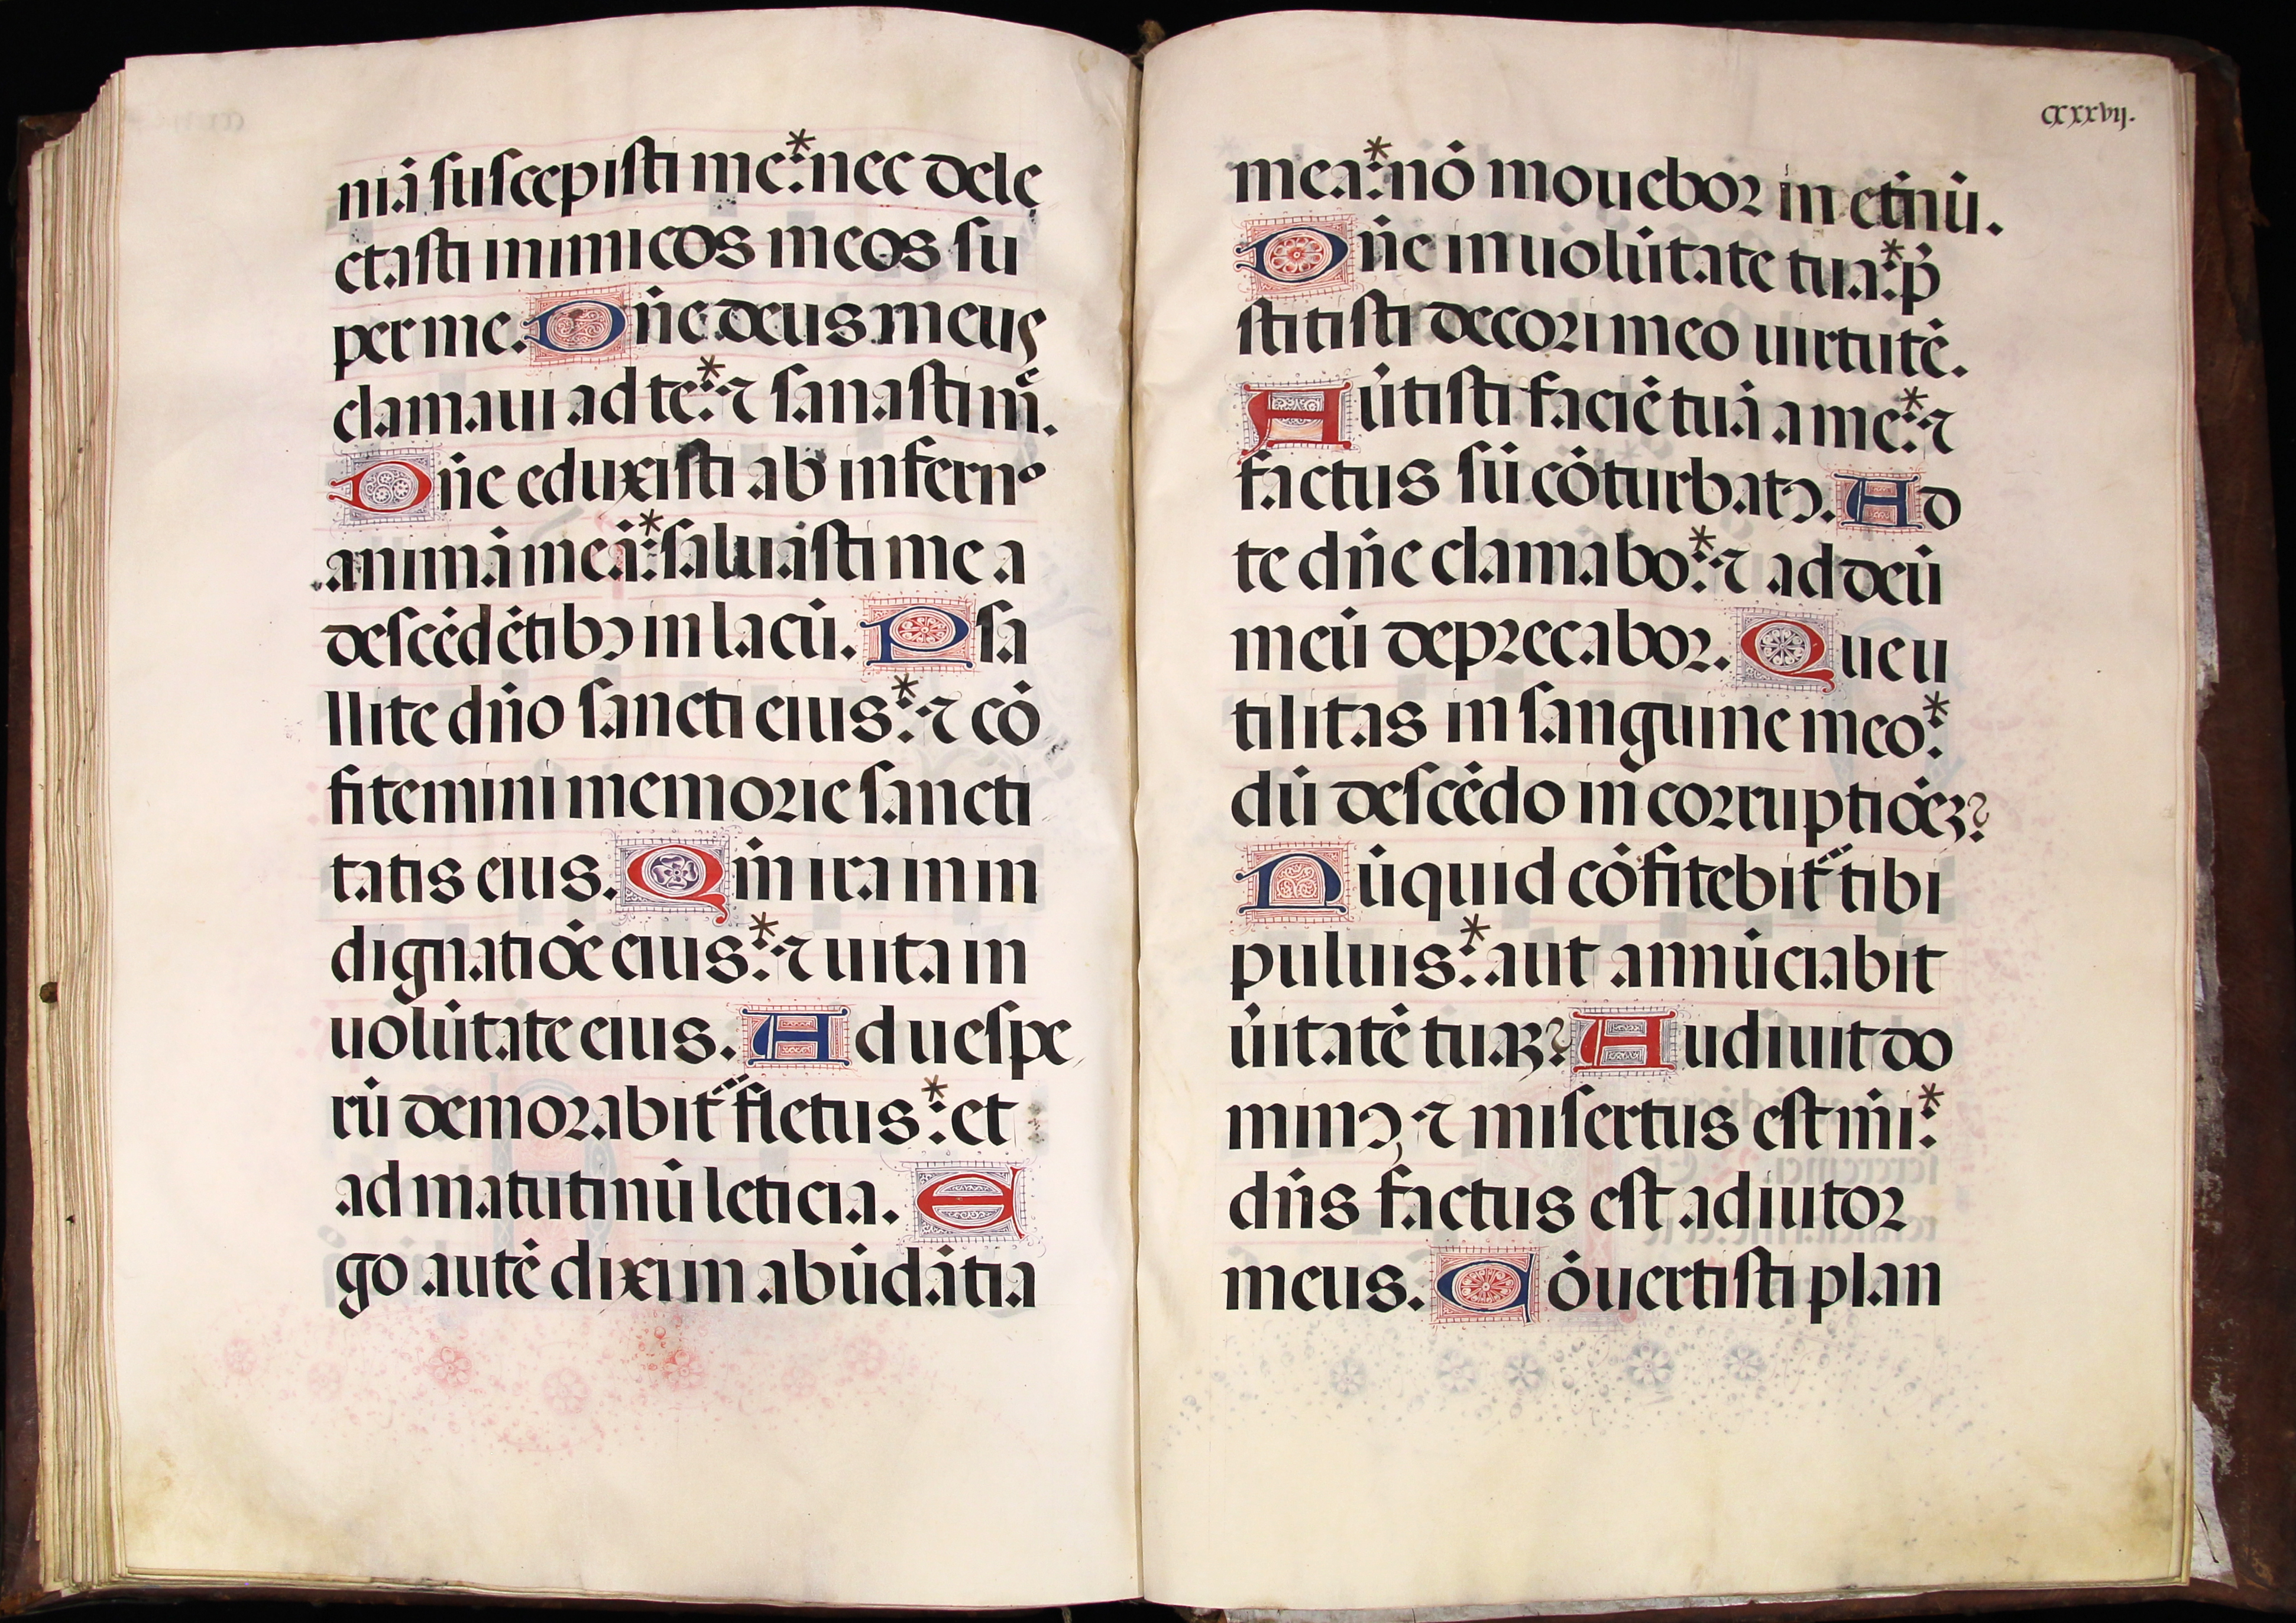 niā suscepisti me:* nec dele
ctasti inimicos meos su
per me. Dn̄e deus meus
clamaui ad te:* ⁊ sanasti mͤ.
Dn̄e eduxisti ab infernº
animā meā:* saluasti me a
descēdētibꝰ in lacū. Psa
llite dn̄o sancti eius:* ⁊ cō
fitemini memorie sancti
tatis eius. Qm̄ ira in in
dignatiōe eius:* ⁊ uita in
uolūtate eius. Ad uespe
rū demorabit᷑ fletus:* et
ad matutinū leticia. E
go autē dixi in abūdātia
cxxxvij.
mea:* nō mouebor in et̄nū.
Dn̄e in uolūtate tua:* p̄
stitisti decori meo uirtutē.
Au̓tisti faciē tuā a me:* ⁊
factus sū cōturbatꝰ. Ad
te dn̄e clamabo:* ⁊ ad deū
meū deprecabor. Que u
tilitas in sanguine meo:*
dū descēdo in corruptiōeꝫ?
Nūquid cōfitebit᷑ tibi
puluis:* aut annūciabit
u̓itatē tuaꝫ? Audiuit do
minꝰ, ⁊ misertus est m̄i:*
dn̄s factus est adiutor
meus. Cōuertisti plan